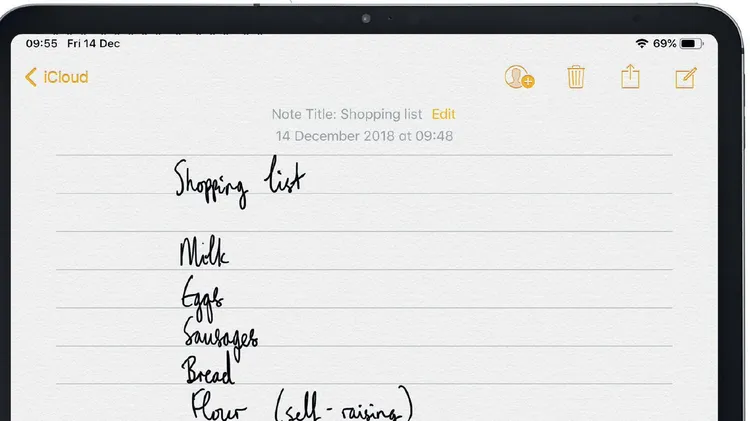 09:55 Fri 14 Dec 69%
iCloud
Note Title: Shopping list Edit
14 December 2018 at 09:48
Shopping list
Milk
Eggs
Sausages
Bread
Flour (self-raising)